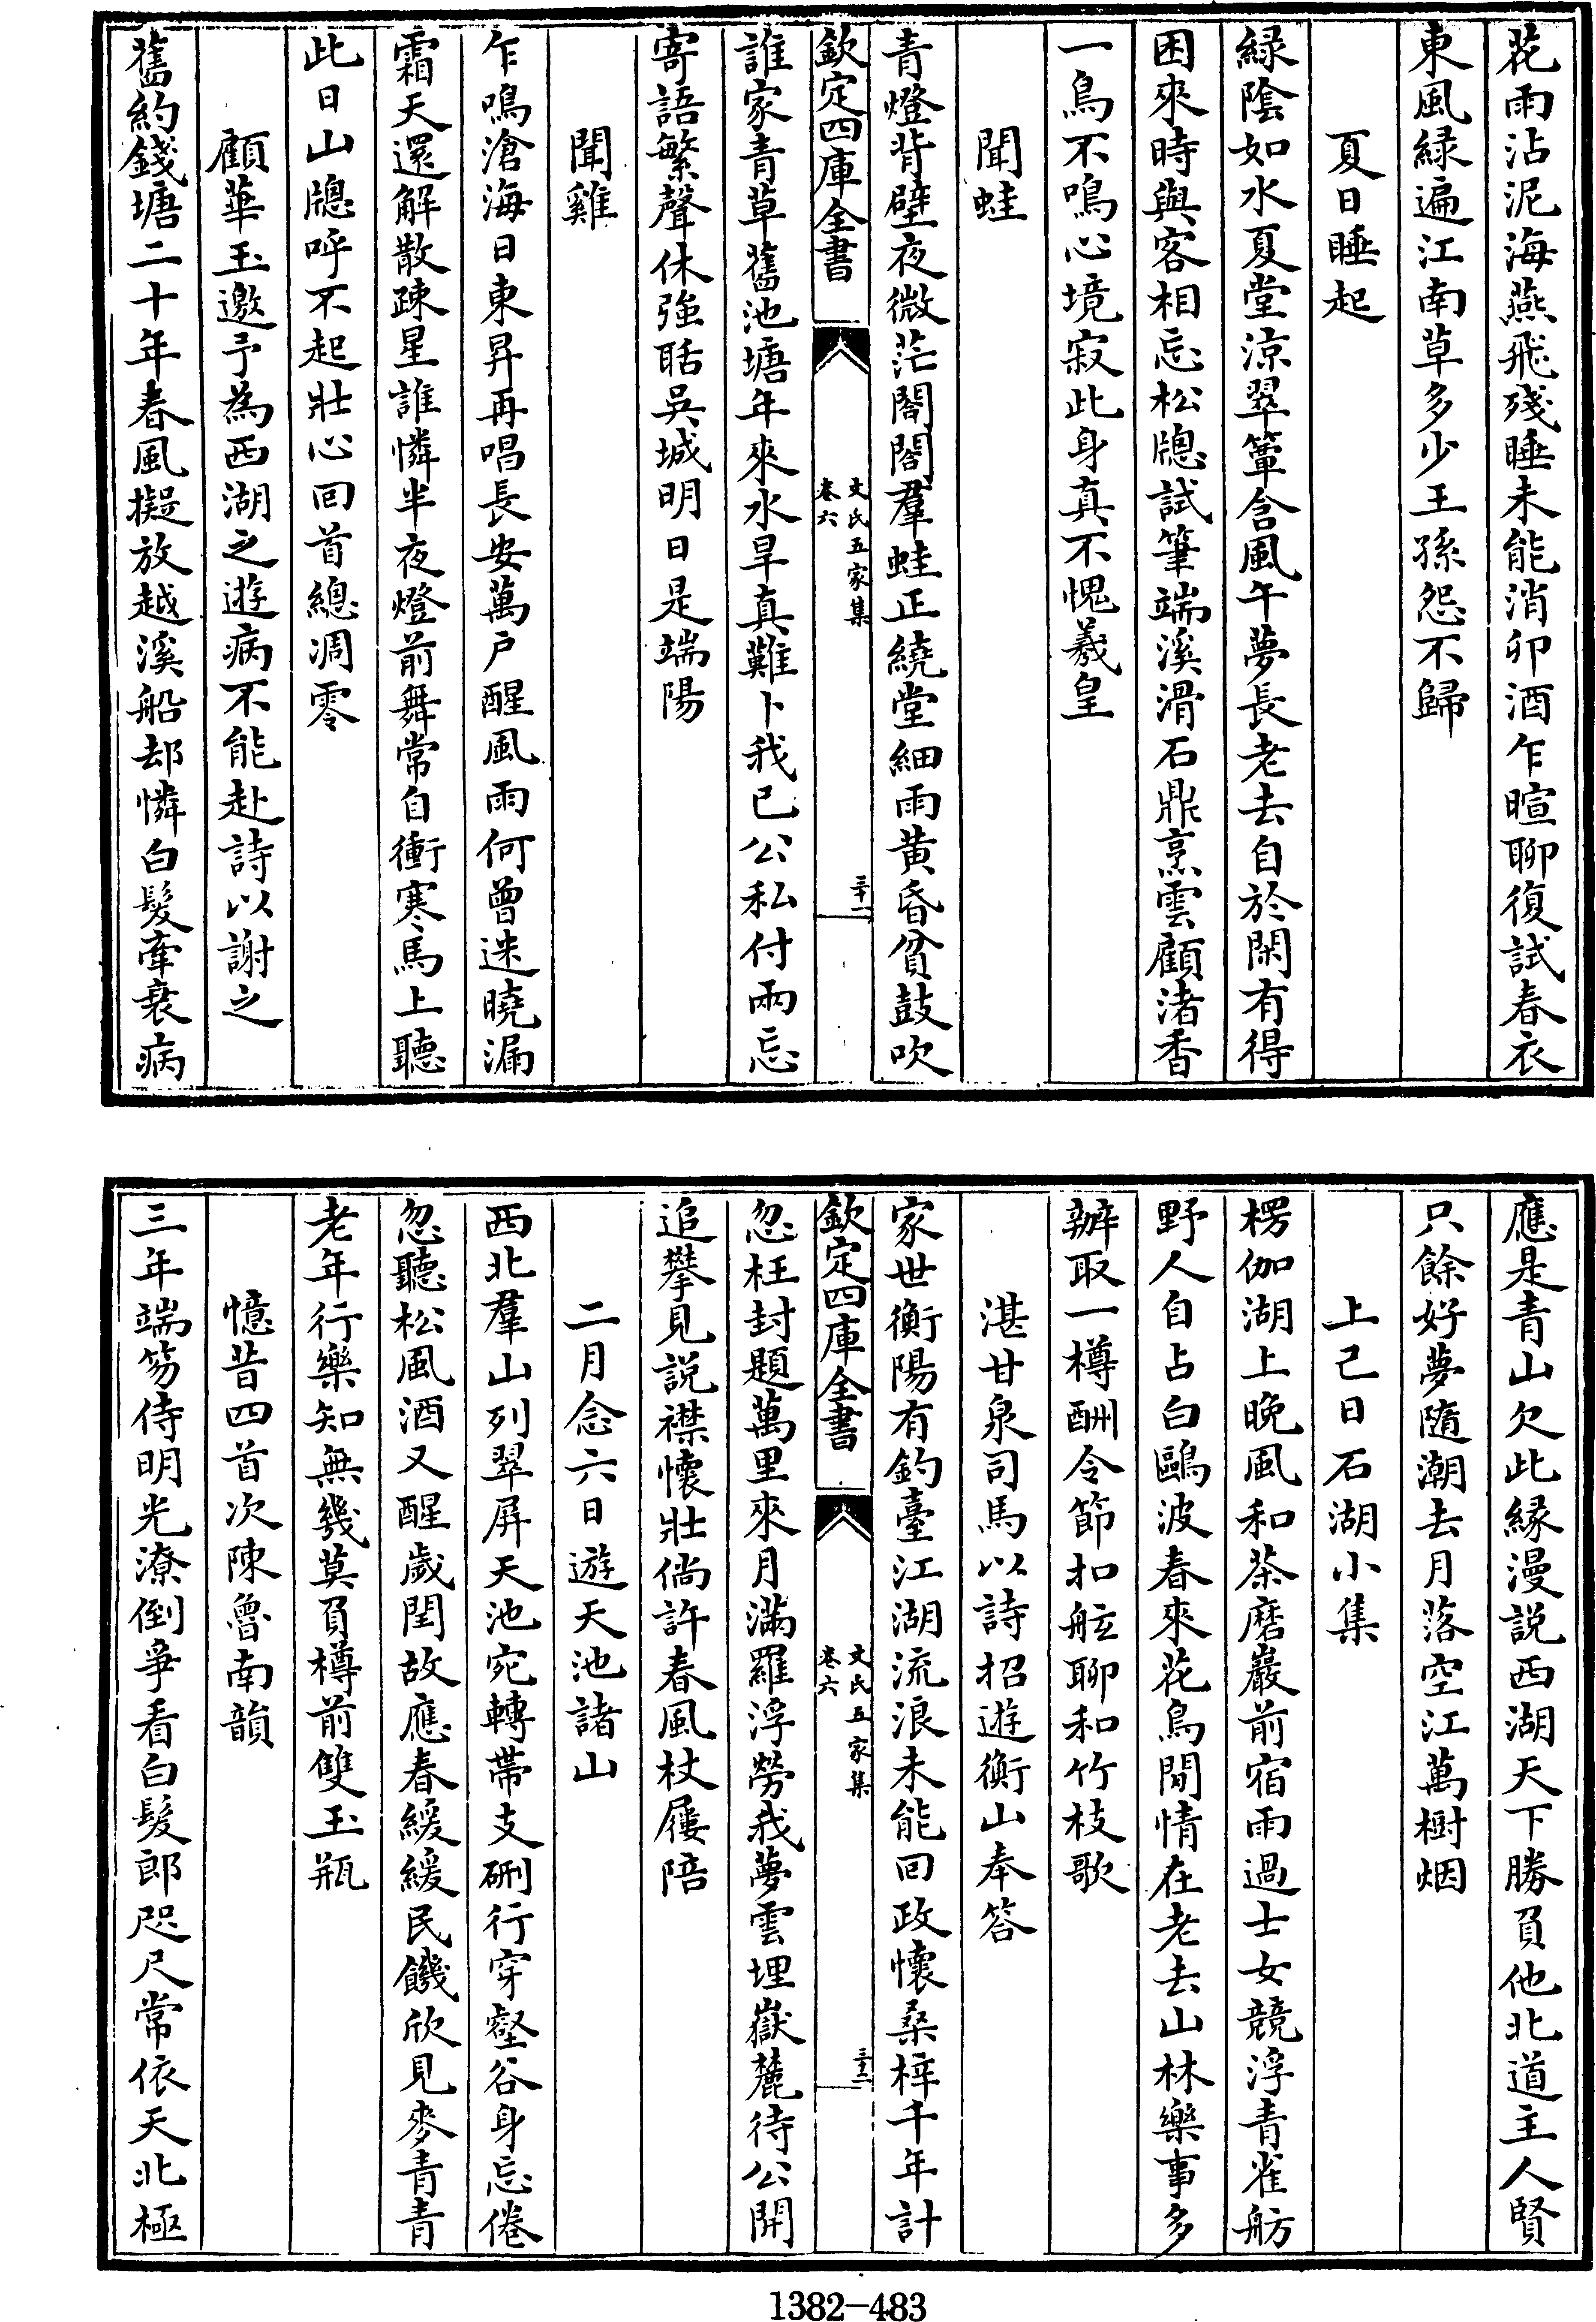 花雨沾泥海燕飛殘睡未能消卯酒乍暄聊復試春衣
東風緑遍江南草多少王孫怨不歸
夏日睡起
緑隂如水夏堂涼翠簟含風午夢長老去自於閑有得
困來時與客相忘松牕試筆端溪滑石鼎烹雲顧渚香
一鳥不鳴心境寂此身真不愧羲皇
聞蛙
青燈背壁夜微茫閤閤羣蛙正繞堂細雨黄昏貧鼓吹
欽定四庫全書
文氏五家集
卷六
三十一
誰家青草舊池塘年來水旱真難卜我已公私付兩忘
寄語繁聲休強聒吳城明日是端陽
聞雞
乍鳴滄海日東昇再唱長安萬戸醒風雨何曾迷曉漏
霜天還解散疎星誰憐半夜燈前舞常自衝寒馬上聽
此日山牕呼不起壯心回首總凋零
顧華玉邀予為西湖之遊病不能赴詩以謝之
舊約錢塘二十年春風擬放越溪船却憐白髮牽衰病
應是青山欠此緣漫説西湖天下勝負他北道主人賢
只餘好夢隨潮去月落空江萬樹烟
上己日石湖小集
楞伽湖上晩風和茶磨巖前宿雨過士女競浮青雀舫
野人自占白鷗波春來花鳥閒情在老去山林樂事多
辦取一樽酬令節扣舷聊和竹枝歌
湛甘泉司馬以詩招遊衡山奉答
家世衡陽有釣臺江湖流浪未能回政懷桑梓千年計
欽定四庫全書
文氏五家集
卷六
三十二
忽枉封題萬里來月滿羅浮勞我夢雲埋嶽麓待公開
追攀見説襟懷壯倘許春風杖屨陪
二月念六日遊天池諸山
西北羣山列翠屏天池宛轉帶支硎行穿壑谷身忘倦
忽聽松風酒又醒歲閏故應春緩緩民饑欣見麥青青
老年行樂知無幾莫負樽前雙玉瓶
憶昔四首次陳魯南韻
三年端笏侍明光潦倒爭看白髮郎咫尺常依天北極
1382-483